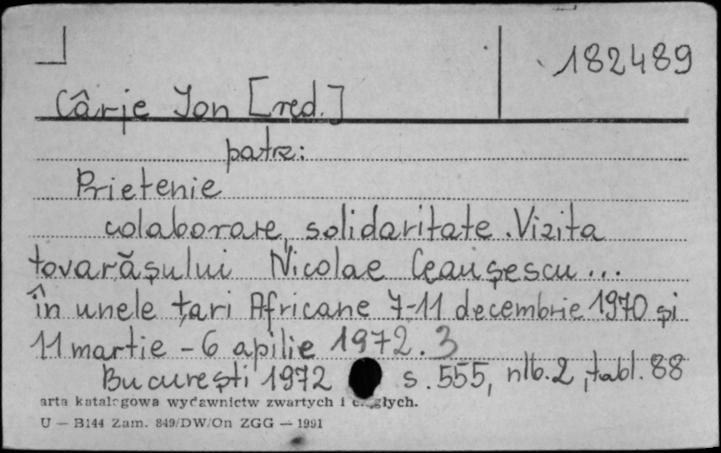 182489
Cârje Ion [red.]
patrz:
Prietenie
colaborare, solidaritate. Vizita
tovarăşului Nicolae Ceauşescu...
în unele ţari Africane 7-11 decembrie 1970 şi
11 martie - 6 apilie 1972. 3
Bucureşti 1972 s. 555, nlb. 2, tabl. 88
arta katalogowa wydawnictw zwartych i ciągłych.
U — B144 Zam. 849/DW/On ZGG — 1991